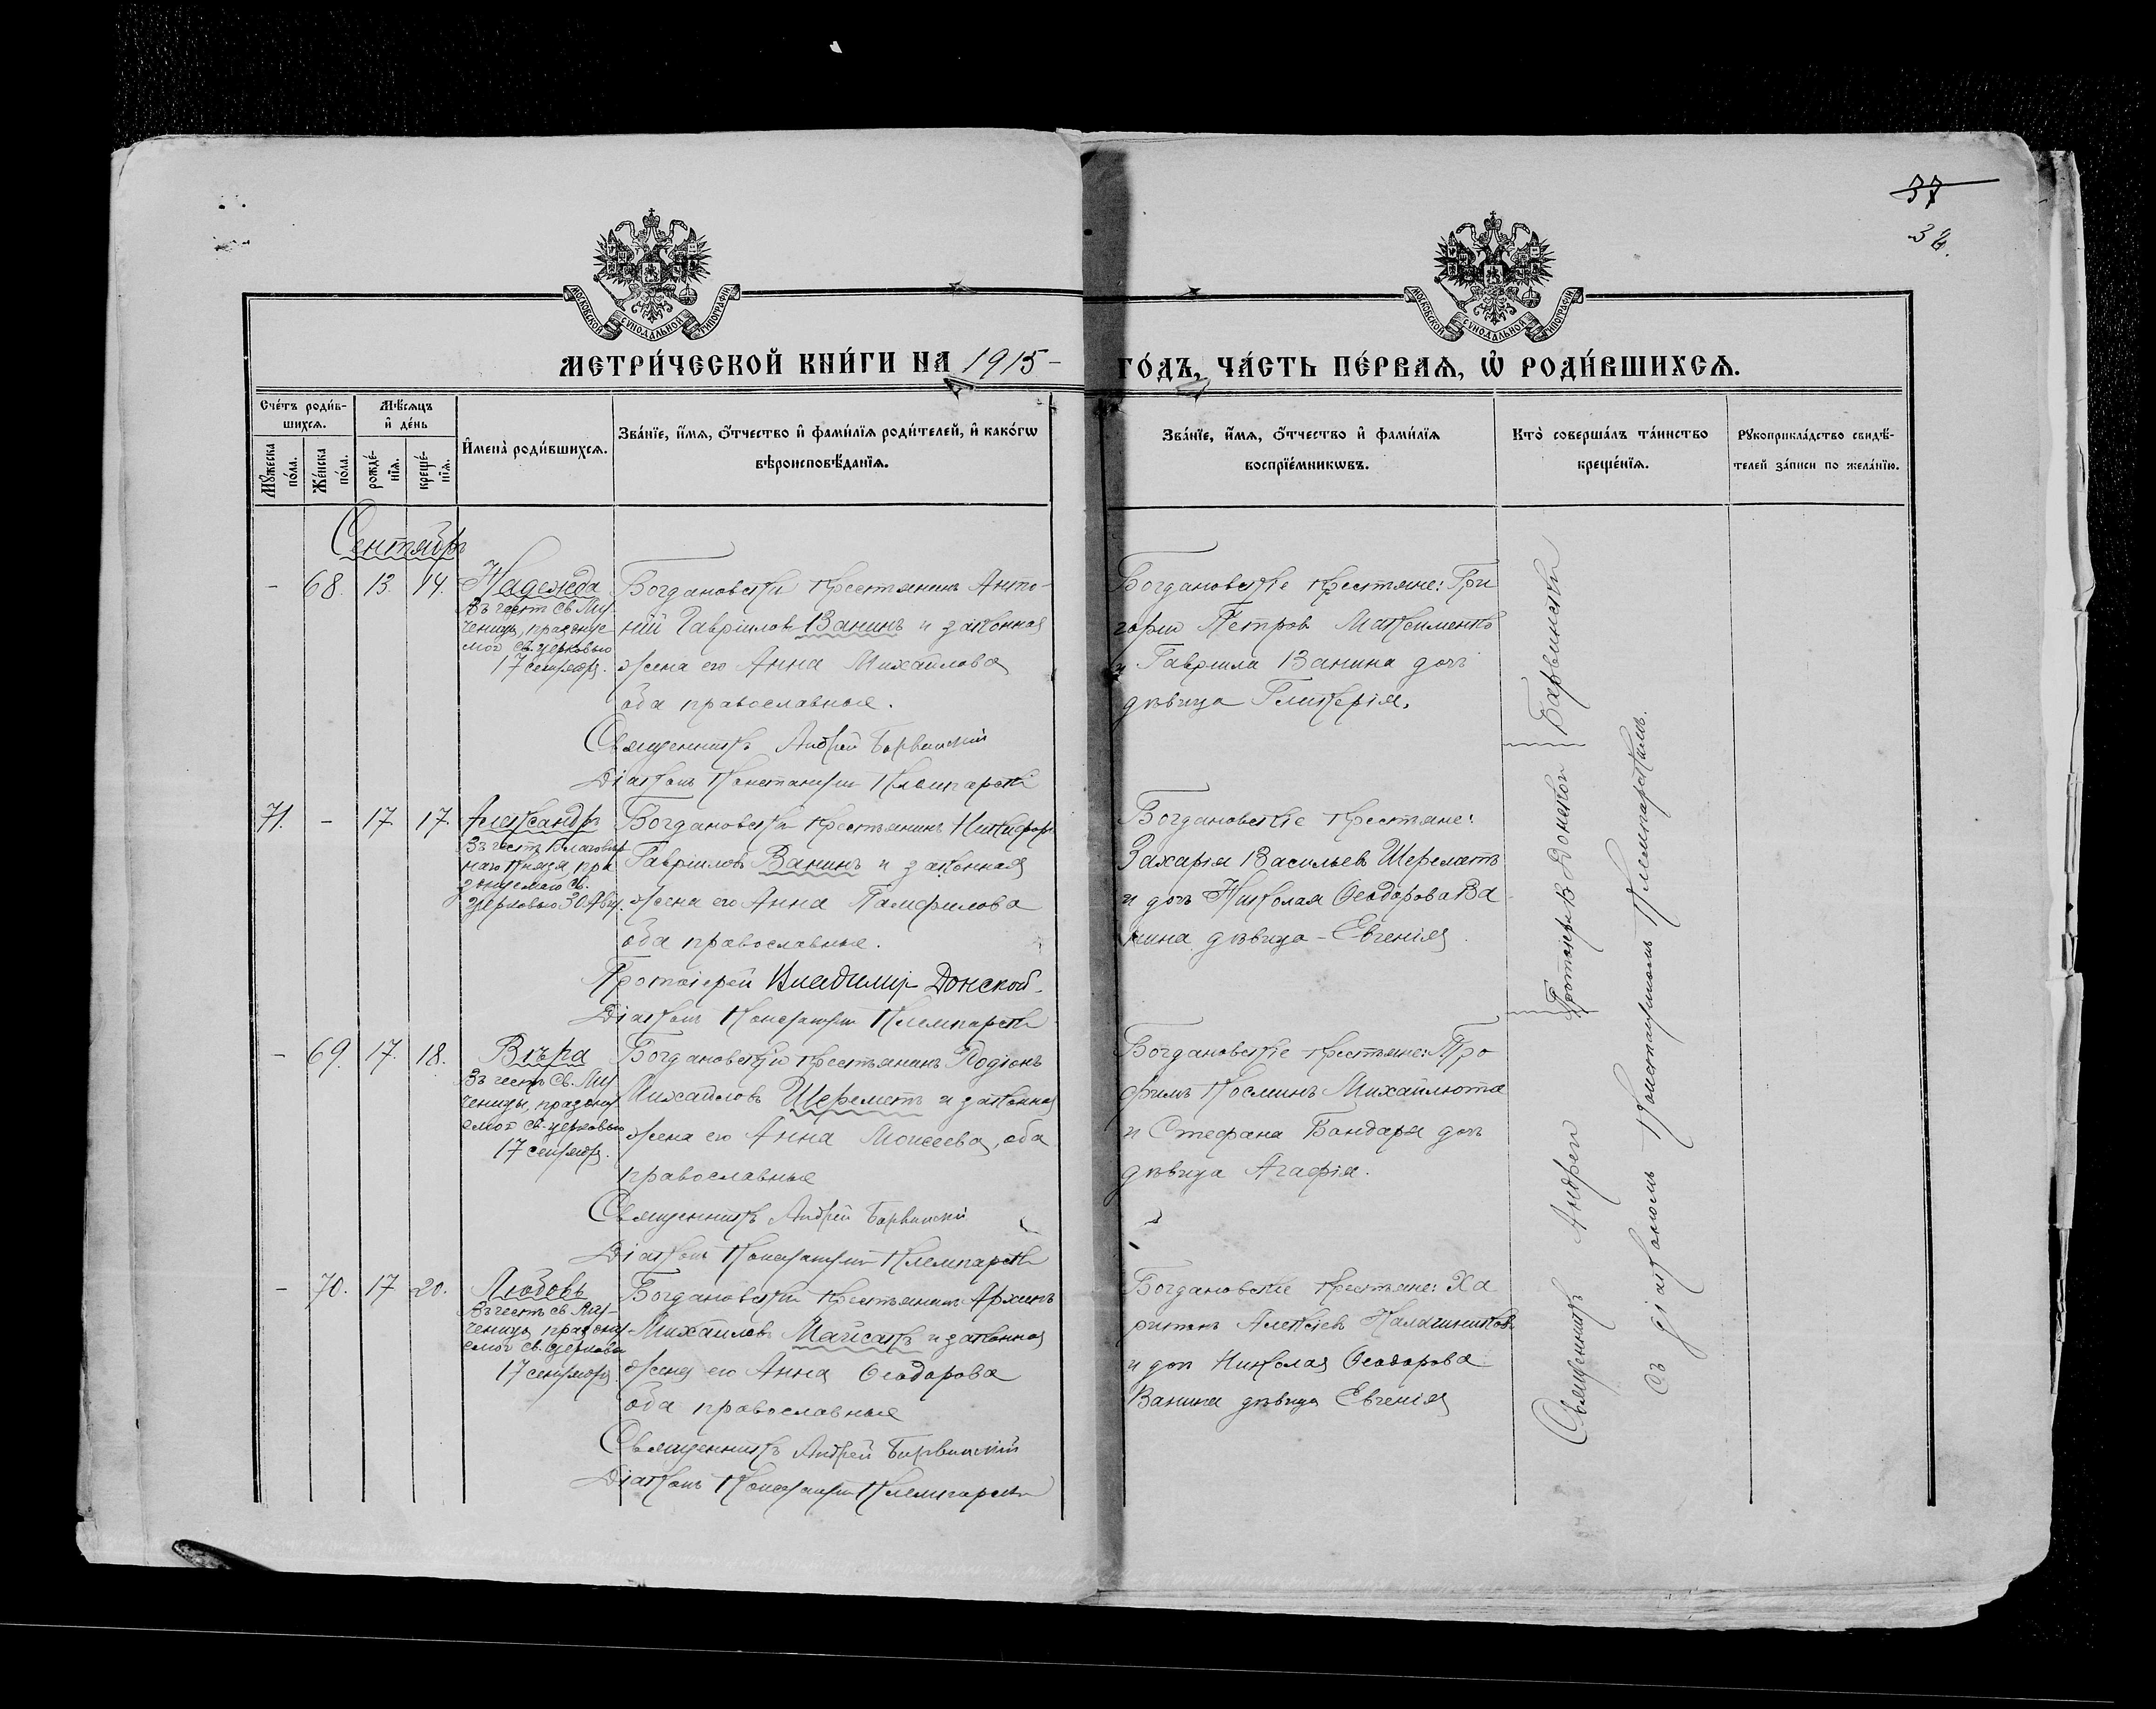 37
36.
МОСКОВСКОЙ СѴНОДАЛЬНОЙ ТИПОГРАФІИ
МОСКОВСКОЙ СѴНОДАЛЬНОЙ ТИПОГРАФІИ
МЕТРИ́ЧЕСКОЙ КНИ́ГИ НА 1915 - ГО́ДЪ, ЧА́СТЬ ПЕ́РВАѦ, Ѡ҆ РОДИ́ВШИХСѦ.
Сче́тъ роди́в-
шихсѧ.
Мꙋ́жеска по́ла.
Же́нска по́ла.
Мѣ́сѧцъ
и҆ де́нь
рожде́-
нїѧ.
креще́-
нїѧ.
И҆мена̀ роди́вшихсѧ.
Зва́нїе, и҆́мѧ, ѻ҆́тчество и҆ фами́лїѧ роди́телей, и҆ како́гѡ
вѣроисповѣ́данїѧ.
Зва́нїе, и҆́мѧ, ѻ҆́тчество и҆ фами́лїѧ
воспрїе́мникѡвъ.
Кто̀ соверша́лъ та́инство
креще́нїѧ.
Рꙋкоприкла́дство свидѣ́-
телей за́писи по жела́нїю.
Сентябрь
- 68. 13. 14. Надежда
Въ честь Св. Му-
ченицы, праздну-
емой Св. церковью
17 сентября.
Богдановскій крестьянинъ Анто-
ній Гавріиловъ Ванинъ и законная
жена его Анна Михайлова
оба православные.
Священникъ Андрей Барвинскій
Діаконъ Константинъ Клемпарскій
Богдановскіе крестьяне: Гри
горій Петровъ Максименко
и Гавріила Ванина дочь
дѣвица Гликерія.
71. - 17. 17. Александръ
Въ честь Благовѣр
наго Князя, пра
зднуемаго Св.
церковью 30 Авг.
Богдановскій крестьянинъ Никифоръ
Гавріиловъ Ванинъ и законная
жена его Анна Памфилова
оба православные.
Протоіерей Владимір Донской.
Діаконъ Константинъ Клемпарскій
Богдановскіе крестьяне:
Захарія Васильевъ Шереметъ
и дочь Николая Ѳеодорова Ва
нина дѣвица - Евгенія
- 69. 17. 18. Вѣра
Въ честь Св. Му
ченицы, праздну
емой Св. церковью
17 сентября.
Богдановскій крестьянинъ Родіонъ
Михайловъ Шереметъ и законная
жена его Анна Моисеева, оба
православные
Священникъ Андрей Барвинскій
Діаконъ Константинъ Клемпарскій
Богдановскіе крестьяне: Тро
фимъ Косминъ Михайлюта
и Стефана Бондаря дочь
дѣвица Агафія.
- 70. 17 20. Любовь
Въ честь Св. Му-
ченицы праздну-
емой Св. церковью
17 сентября
Богдановскій крестьянинъ Архипъ
Михаиловъ Майсакъ и законная
жена его Анна Ѳеодорова
оба православные
Священникъ Андрей Барвинскій
Діаконъ Константинъ Клемпарскій
Богдановскіе крестьяне: Ха
ритонъ Алексіевъ
и доч Николая Ѳеодорова
Ванина дѣвица Евгенія
Священникъ Андрей Протоіерей В Донской Барвинскій
съ діакономъ Константиномъ Клемпарскимъ.